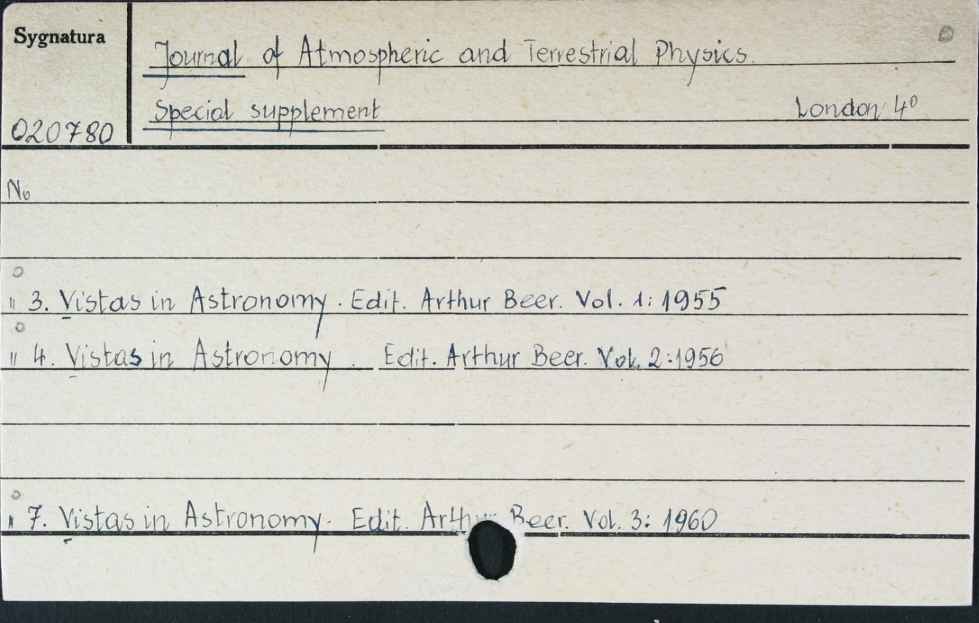 Sygnatura
Journal of Atmospheric and Terrestrial Physics.
Special supplement London 4°
020780
No
" 3. Vistas in Astronomy. Edit. Arthur Beer. Vol. 1: 1955
" 4. Vistas in Astronomy. Edit. Arthur Beer. Vol. 2: 1956
" 7. Vistas in Astronomy. Edit. Arthur Beer. Vol. 3: 1960